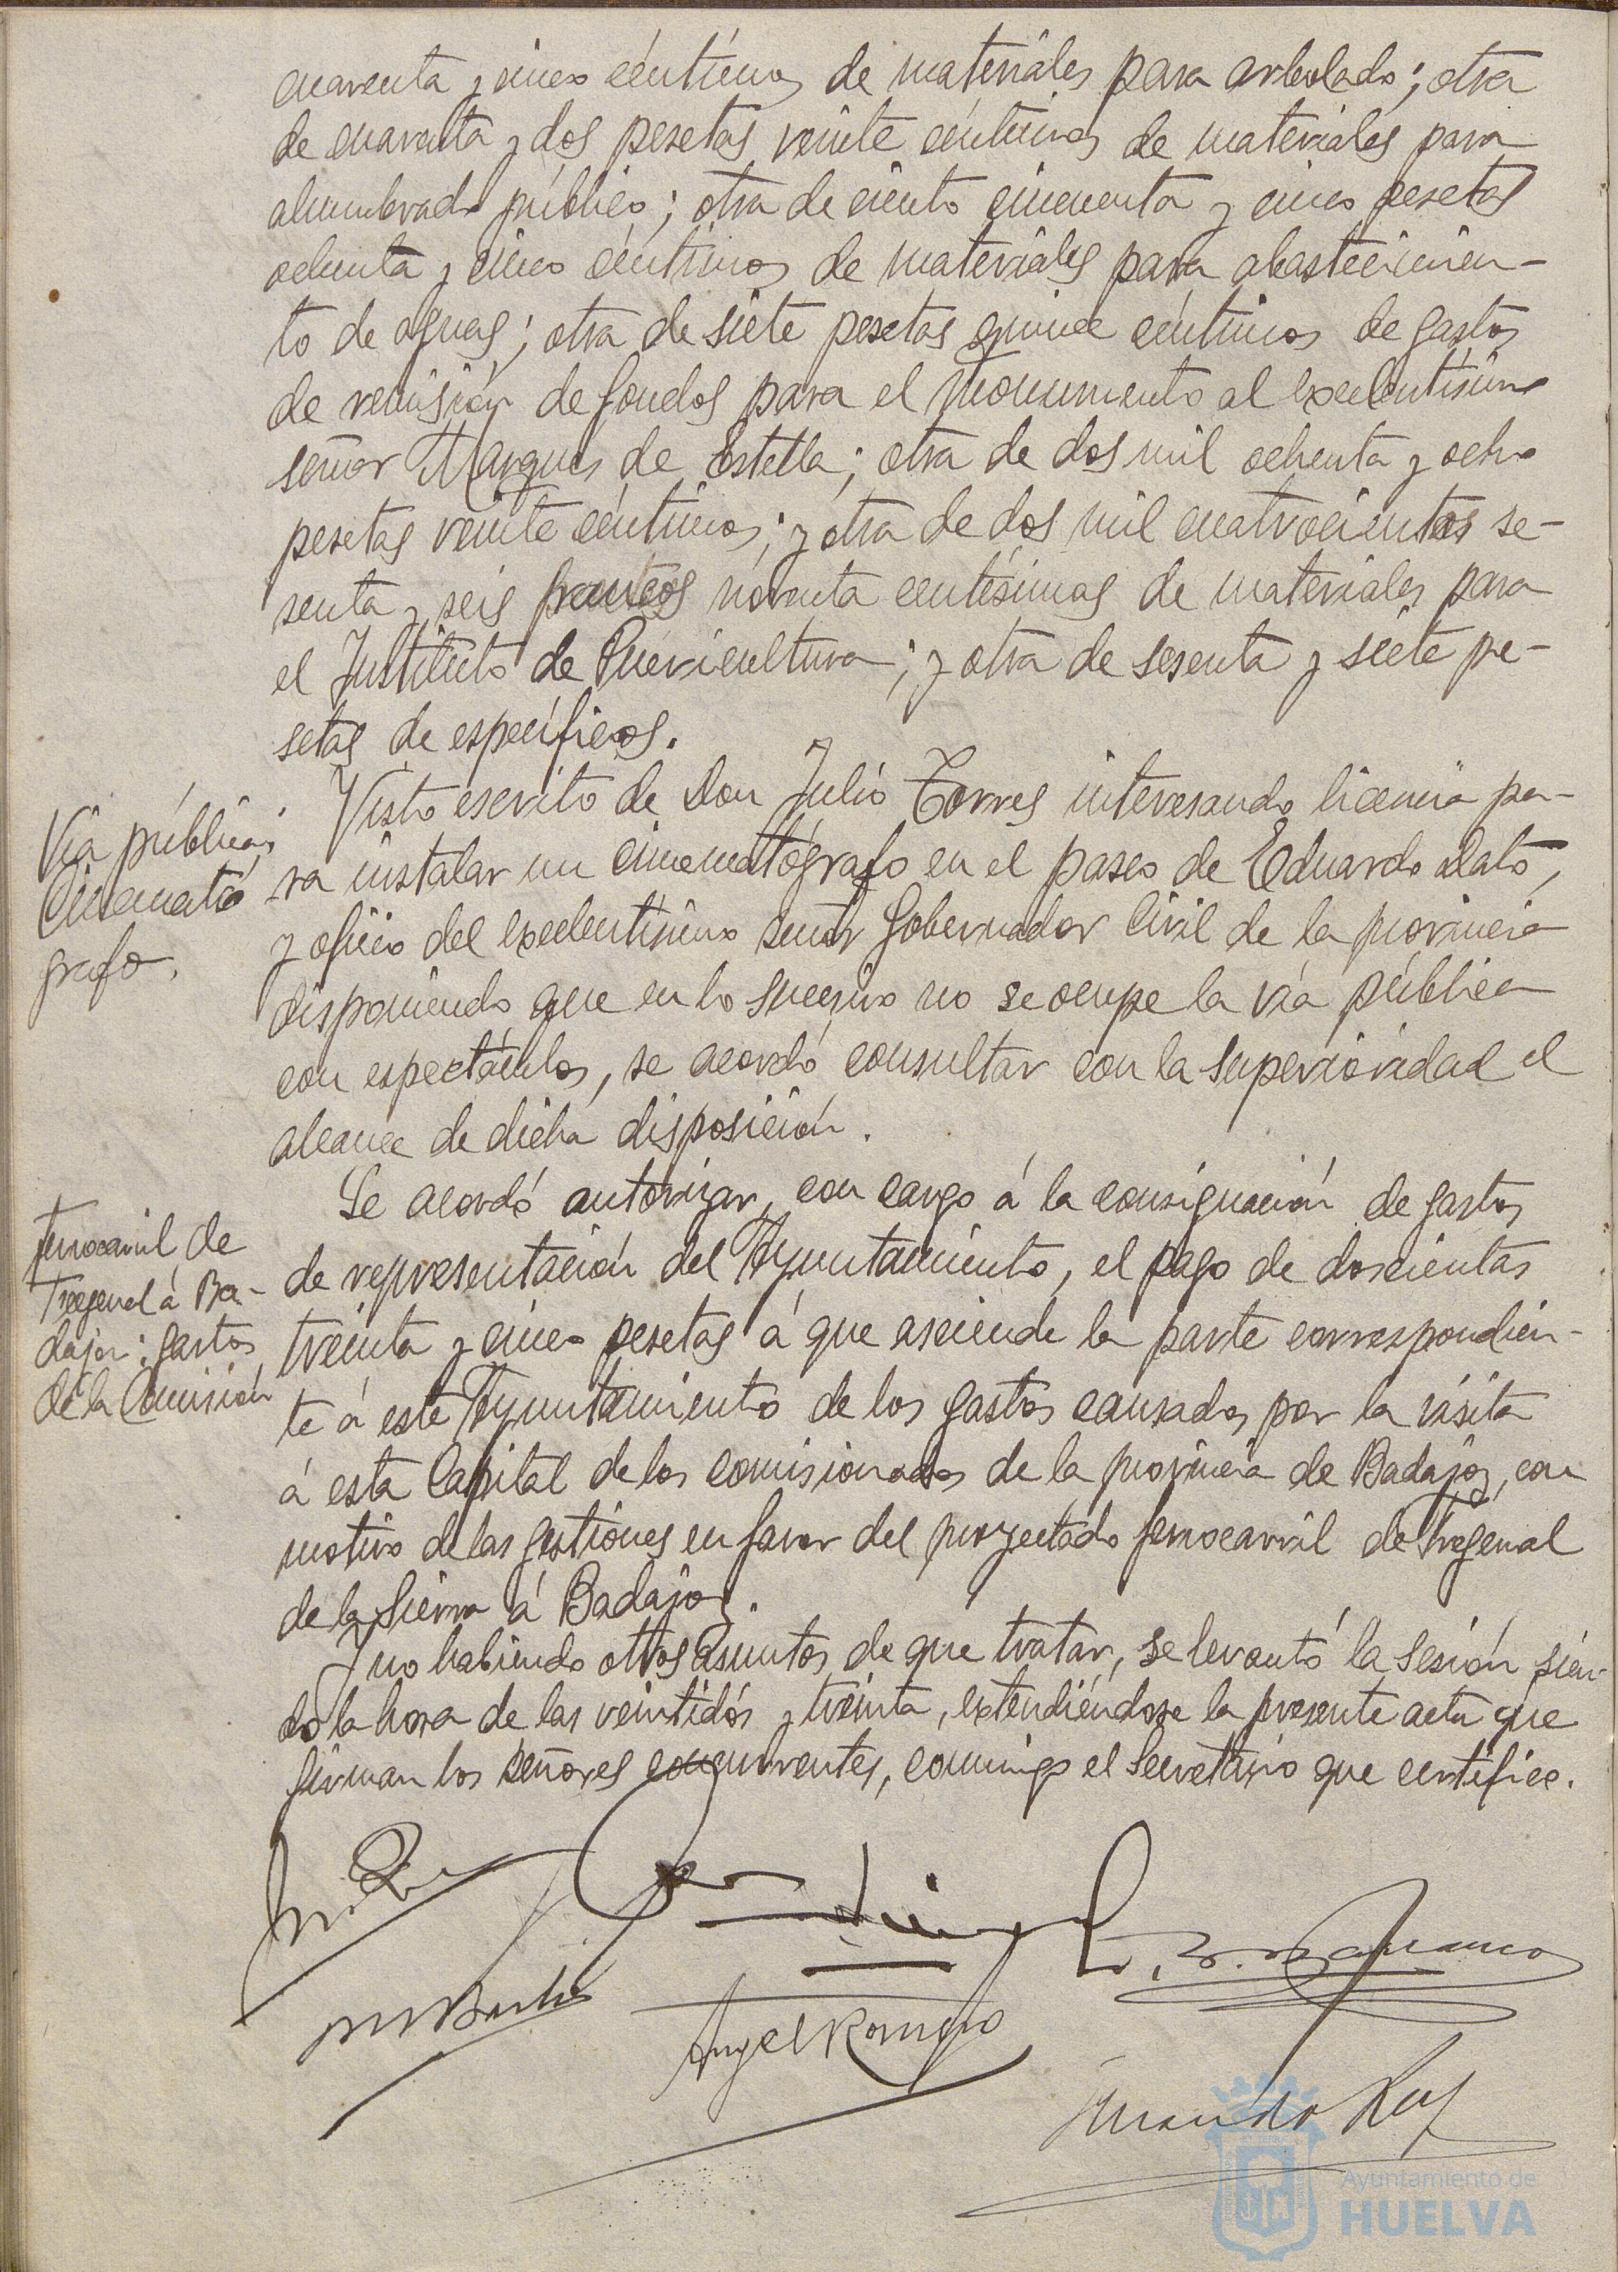 cuarenta y cinco céntimos de materiales para arbolado; otra
de cuarenta y dos pesetas veinte céntimos de materiales para
alumbrado público; otra de ciento cincuenta y cinco pesetas
ochenta y cinco céntimos de materiales para abastecimien-
to de aguas; otra de siete pesetas quince céntimos de gastos
de remisión de fondos para el monumento al excelentísimo
señor Marqués de Estella; otra de dos mil ochenta y ocho
pesetas veinte céntimos; y otra de dos mil cuatrocientos se-
senta y seis francos noventa centésimas de materiales para
el Instituto de Puericultura; y otra de sesenta y siete pe-
setas de específicos.
Vía pública:
Cinemató
grafo.
Visto escrito de Don Julio Torres interesando licencia pa-
ra instalar un cinematógrafo en el paseo de Eduardo Dato,
y oficio del excelentísimo señor Gobernador Civil de la provincia
disponiendo que en lo sucesivo no se ocupe la vía pública
con espectáculos, se acordó consultar con la superioridad el
alcance de dicha disposición.
Ferrocarril de
Fregenal á Ba-
dajoz: gastos
de la Comisión
Se acordó autorizar, con cargo á la consignación de gastos
de representación del Ayuntamiento, el pago de doscientas
treinta y cinco pesetas á que asciende la parte correspondien-
te á este Ayuntamiento de los gastos causados por la visita
á esta Capital de los comisionados de la provincia de Badajoz, con
motivo de las gestiones en favor del proyectado ferrocarril de Fregenal
de la Sierra á Badajoz.
Y no habiendo otros asuntos de que tratar, se levantó la sesión sien-
do la hora de las veintidós y treinta, extendiéndose la presente acta que
firman los señores concurrentes, conmigo el Secretario que certifico.
Angel Romero
Ayuntamiento de
HUELVA